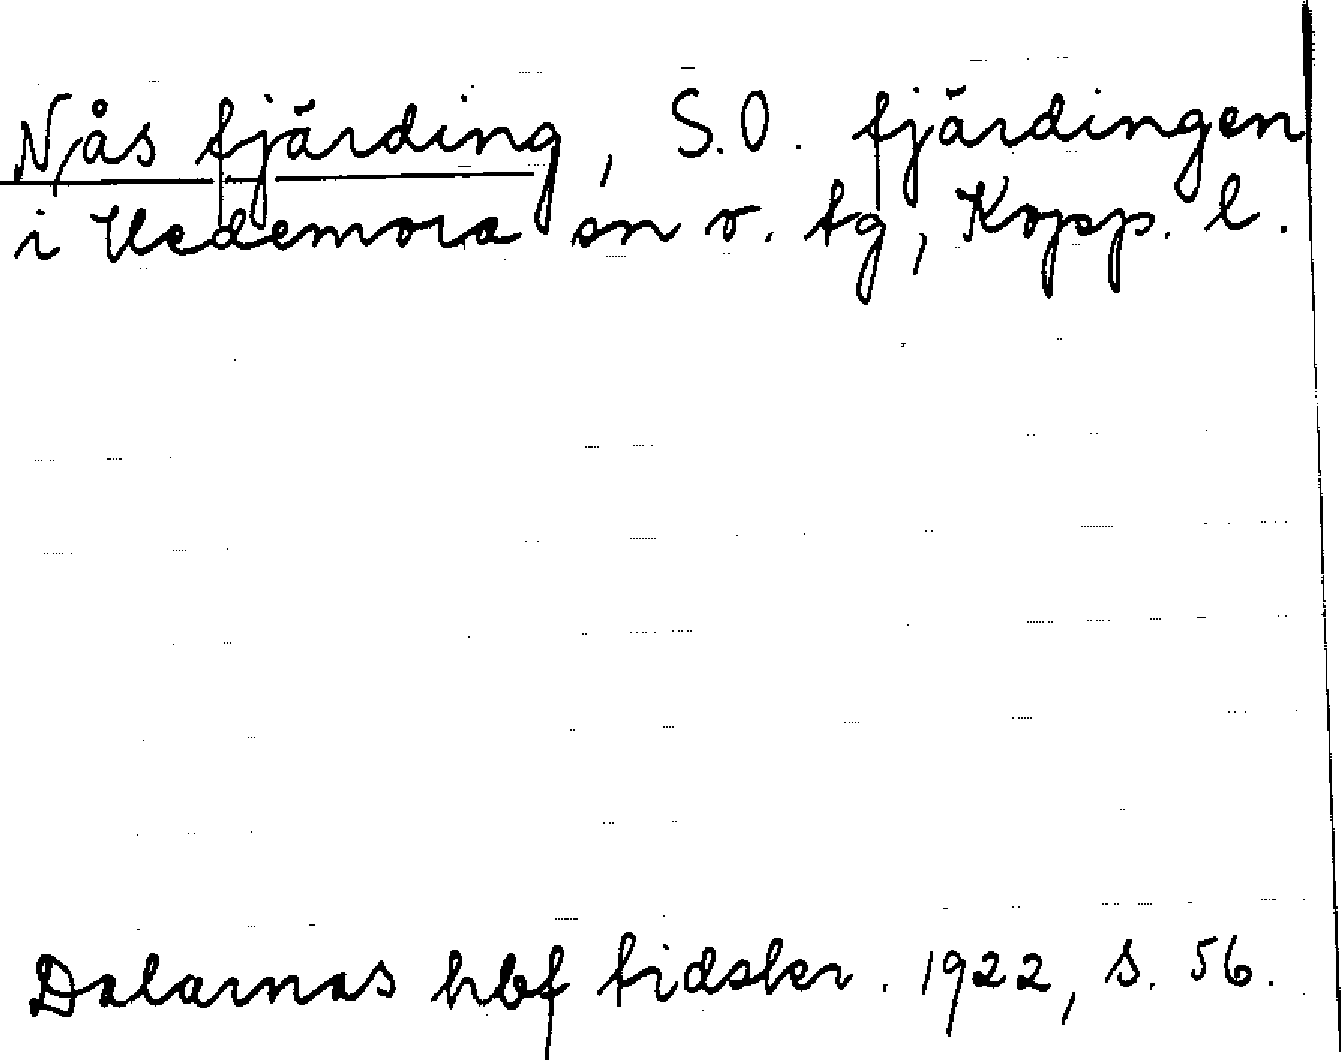 Nås fjärding, S.O. fjärdingen
i Hedemora sn o. tg, Kopp. l.
Dalarnas hbf tidskr. 1922, s. 56.